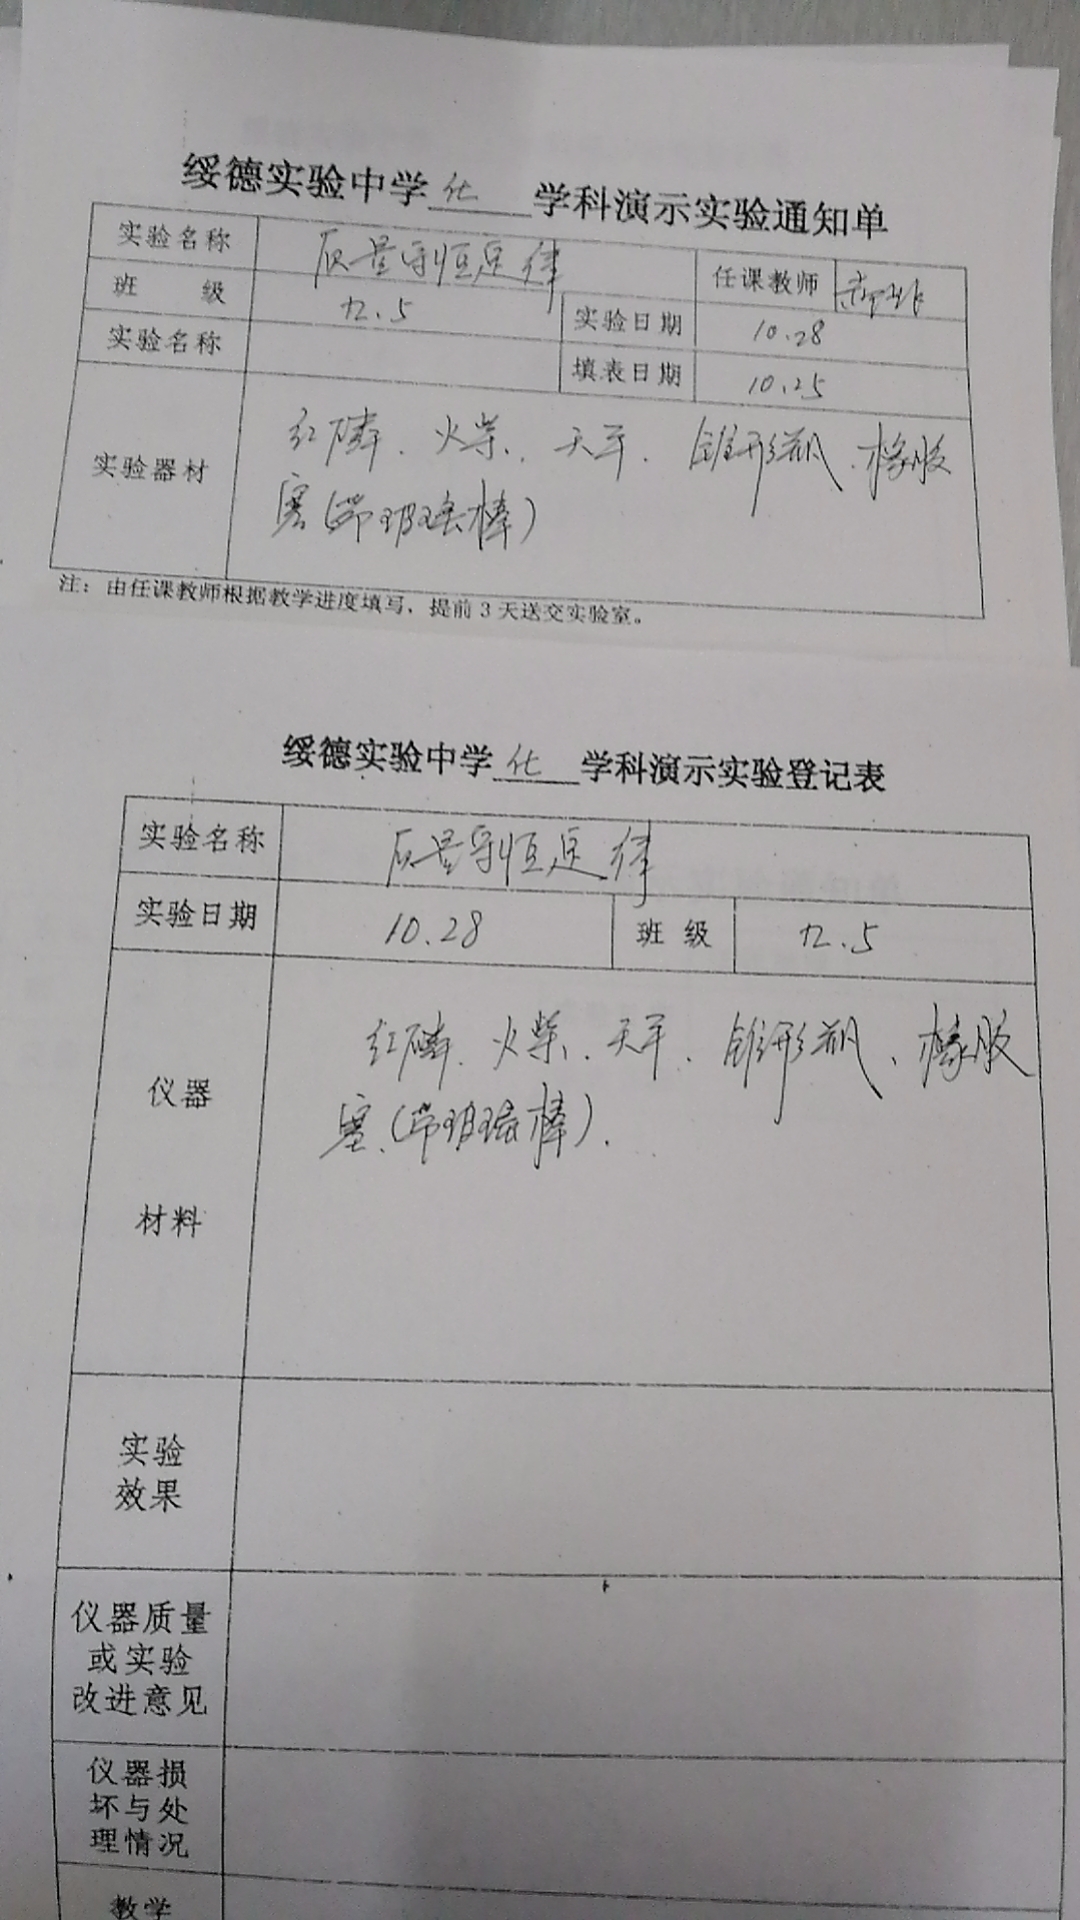 绥德实验中学 化 学科演示实验通知单
实验名称 质量守恒定律 任课教师
班 级 九.5 实验日期 10.28
实验名称 填表日期 10.25
实验器材 红磷、火柴、天平、锥形瓶、橡胶
塞(带玻璃棒)
注：由任课教师根据教学进度填写，提前3天送交实验室。
绥德实验中学 化 学科演示实验登记表
实验名称 质量守恒定律
实验日期 10.28 班 级 九.5
仪器 红磷、火柴、天平、锥形瓶、橡胶
塞(带玻璃棒).
材料
实验
效果
仪器质量
或实验
改进意见
仪器损
坏与处
理情况
教学